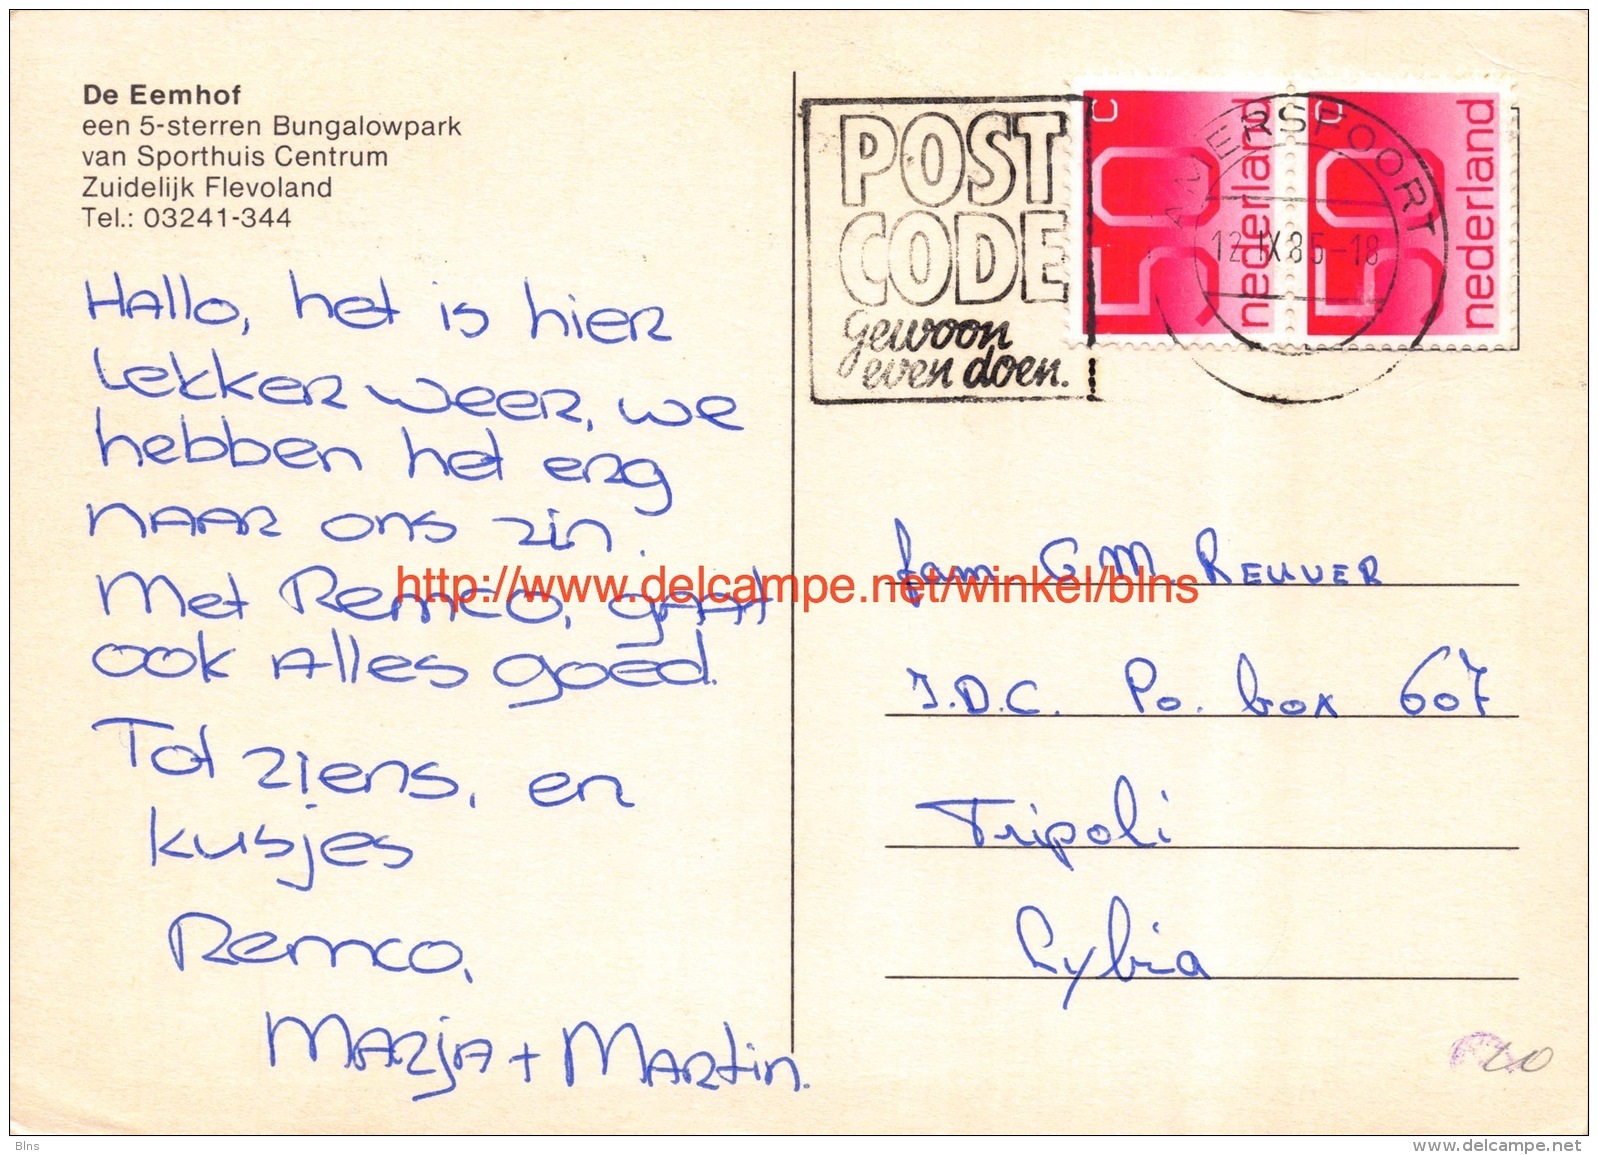 De Eemhof
een 5-sterren Bungalowpark
van Sporthuis Centrum
Zuidelijk Flevoland
Tel.: 03241-344
Hallo, het is hier
lekker weer, we
hebben het erg
naar ons zin.
Met Remco, gaat
ook alles goed.
Tot ziens, en
kusjes
Remco,
Marja + Martin.
POST
CODE
gewoon
even doen.
50 c nederland
50 c nederland
AMERSFOORT
12-IX85-18
fam G.M. Reuver
I.D.C. Po. box 607
Tripoli
Lybia
http://www.delcampe.net/winkel/blns
Blns
www.delcampe.net